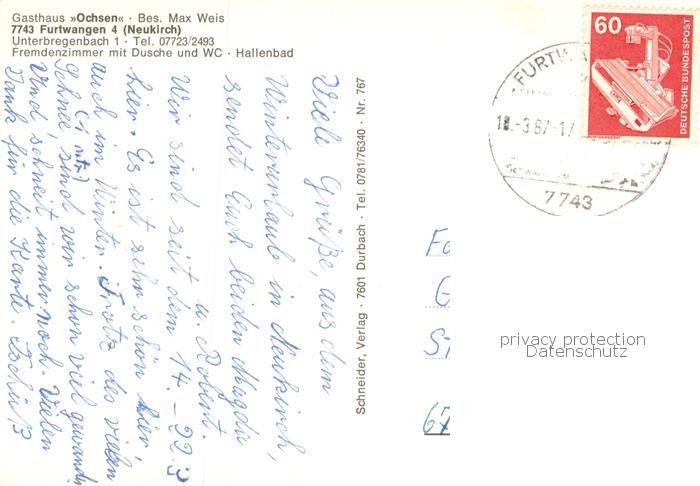 Gasthaus »Ochsen« · Bes. Max Weis
7743 Furtwangen 4 (Neukirch)
Unterbregenbach 1 · Tel. 07723/2493
Fremdenzimmer mit Dusche und WC · Hallenbad
Viele Grüße, aus dem
Winterurlaub in Neukirch,
sendet Euch beiden Magda
u. Robert.
Wir sind seit dem 14. - 22.3
hier. Es ist sehr schön hier,
auch im Winter. Trotz des vielen
Schnee sind wir schon viel gewandert
(1 mtr)
Und schneit immer noch. Vielen
Dank für die Karte. Tschüß
Schneider, Verlag · 7601 Durbach · Tel. 0781/76340 · Nr. 767
60
DEUTSCHE BUNDESPOST
FURTWA
18.-3.87-17
7743
St
67
privacy protection
Datenschutz